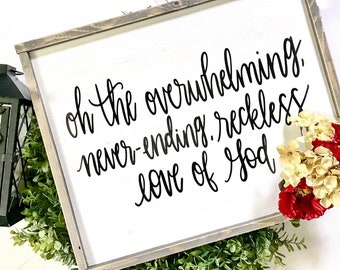 oh the overwhelming,
never-ending, reckless
love of God